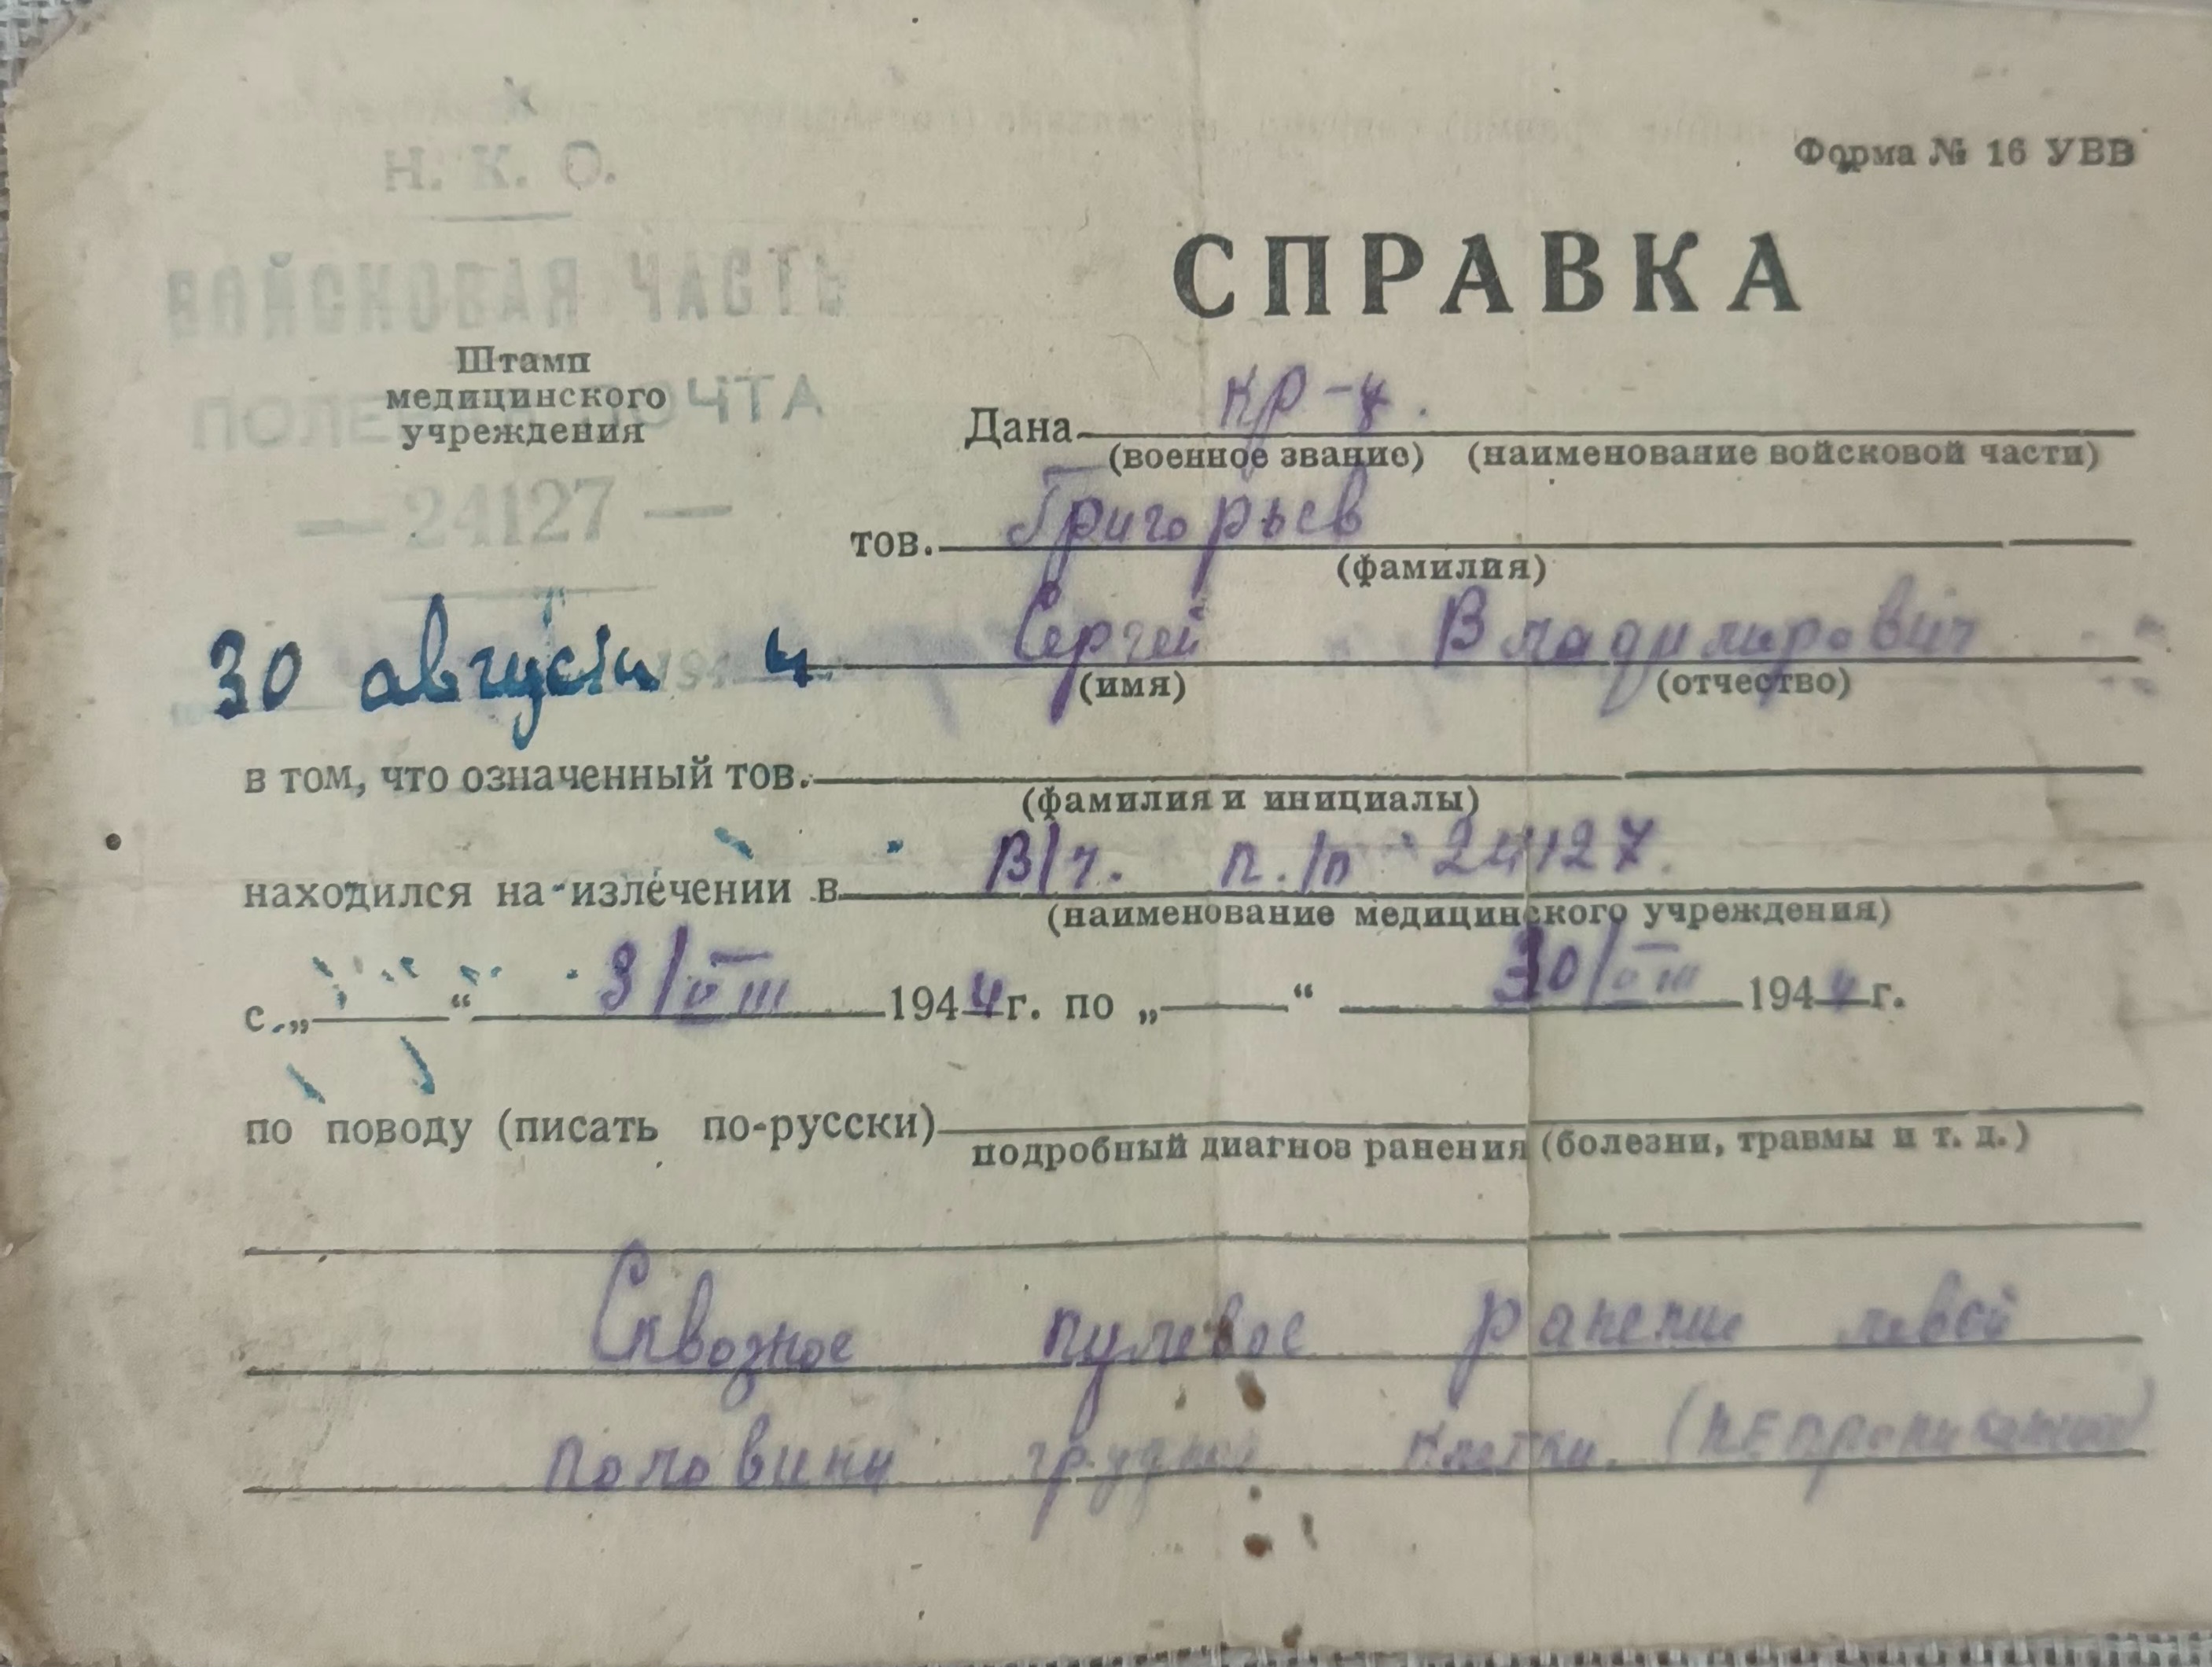 Н. К. О.
Форма № 16 УВВ
ВОЙСКОВАЯ ЧАСТЬ
СПРАВКА
Штамп
медицинского
учреждения
ПОЛЕВАЯ ПОЧТА
Дана кр-ц.
(военное звание) (наименование войсковой части)
— 24127 —
тов. Григорьев
(фамилия)
30 августа 194 4 Сергей Владимирович
(имя) (отчество)
в том, что означенный тов.
(фамилия и инициалы)
находился на излечении в В/ч. п./п 24127.
(наименование медицинского учреждения)
с „ “ 3/VIII 1944 г. по „ “ 30/VIII 1944 г.
по поводу (писать по-русски)
подробный диагноз ранения (болезни, травмы и т. д.)
Сквозное пулевое ранение левой
половины грудной клетки. (непроникающее)